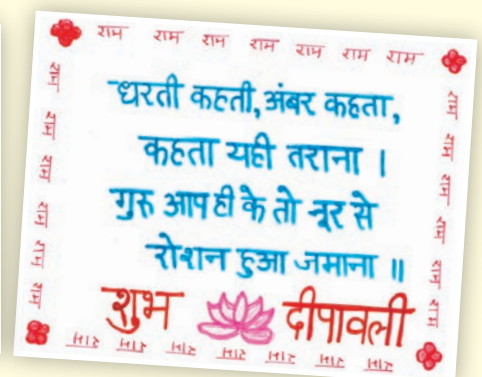 राम राम राम राम राम राम राम
राम
राम
राम
राम
राम
राम
धरती कहती, अंबर कहता,
कहता यही तराना ।
गुरु आप ही के तो नूर से
रोशन हुआ जमाना ॥
शुभ दीपावली
राम
राम
राम
राम
राम
राम
राम राम राम राम राम राम राम